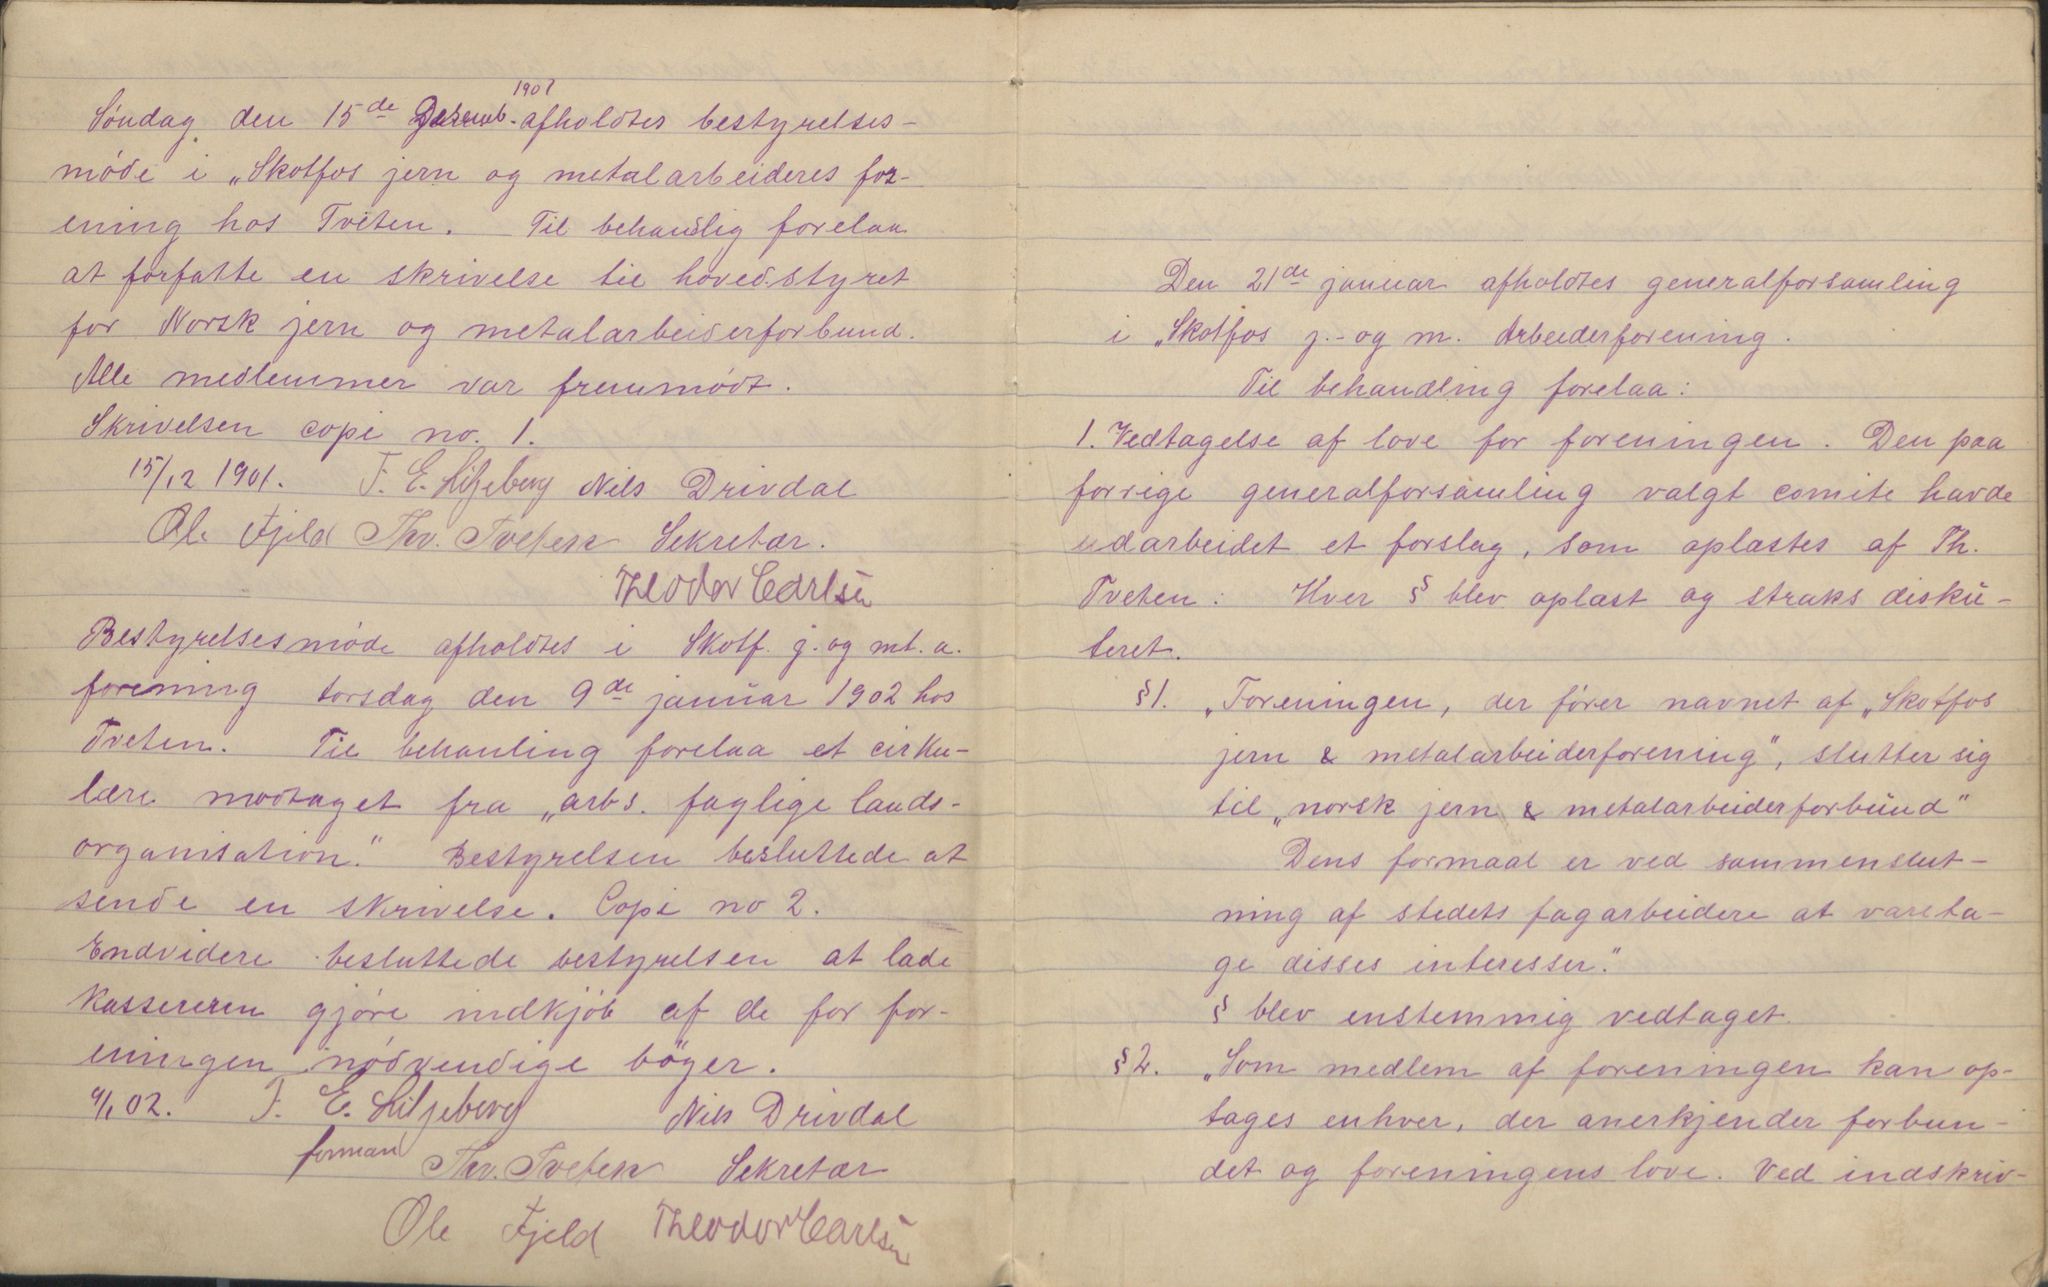 1901
Søndag den 15de Desemb. afholdtes bestyrelses-
møde i „Skotfos jern og metalarbeideres for-
ening hos Tveten. Til behandlig forelaa
at forfatte en skrivelse til hovedstyret
for Norsk jern og metalarbeiderforbund.
Alle medlemmer var fremmødt.
Skrivelsen copi no. 1.
15/12 1901. F. E. Liljeberg Nils Drivdal
Ole Fjeld Thv. Tveten Sekretær.
Theodor Carlsen
Bestyrelsesmøde afholdtes i Skotf. j. og mt. a.
forening torsdag den 9de januar 1902 hos
Tveten. Til behanling forelaa et cirku-
lære modtaget fra „arbs. faglige lands-
organisation.“ Bestyrelsen besluttede at
sende en skrivelse. Copi no 2.
Endvidere besluttede bestyrelsen at lade
kassereren gjøre indkjøb af de for for-
eningen nødvendige bøger.
9/1 02. F. E. Liljeberg Nils Drivdal
forman Thv. Tveten Sekretær
Ole Fjeld Theodor Carlsen
Den 21de januar afholdtes generalforsamling
i „Skotfos j.- og m. Arbeiderforening.
Til behandling forelaa:
1. Vedtagelse af love for foreningen. Den paa
forrige generalforsamling valgt comite havde
udarbeidet et forslag, som oplæstes af Th.
Tveten: Hver § blev oplæst og straks disku-
teret.
§1. „Foreningen, der fører navnet af „Skotfos
jern & metalarbeiderforening“, slutter sig
til „norsk jern & metalarbeiderforbund“
Dens formaal er ved sammenslut-
ning af stedets fagarbeidere at vareta-
ge disses interesser.“
§ blev enstemmig vedtaget.
§2. „Som medlem af foreningen kan op-
tages enhver, der anerkjender forbun-
det og foreningens love. Ved indskriv-